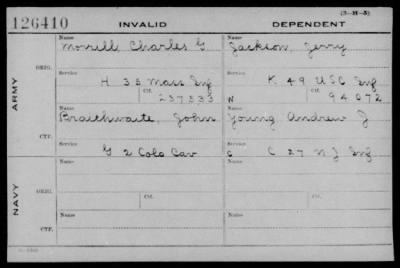 (3-H-5)
126410 INVALID DEPENDENT
ARMY
ORIG.
Name Morrill Charles G Name Jackson, Jerry
Service H 35 Mass Inf Service K 49 USC Inf
Ctf. 237333 W Ctf. 94072
CTF.
Name Braithwaite, John Name Young Andrew J
Service G 2 Colo Cav Service C C 27 N J Inf
NAVY
ORIG.
Name Name
Service Ctf. Service Ctf.
CTF.
Name Name
Service Service